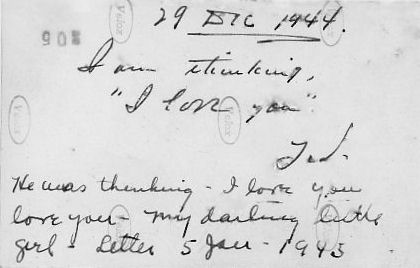 29 DEC 1944.
205
I am thinking,
"I love you"
Ted.
He was thinking - I love you
love you - my darling little
girl - Letter 5 Jan - 1945
Velox
Velox
Velox
Velox
Velox